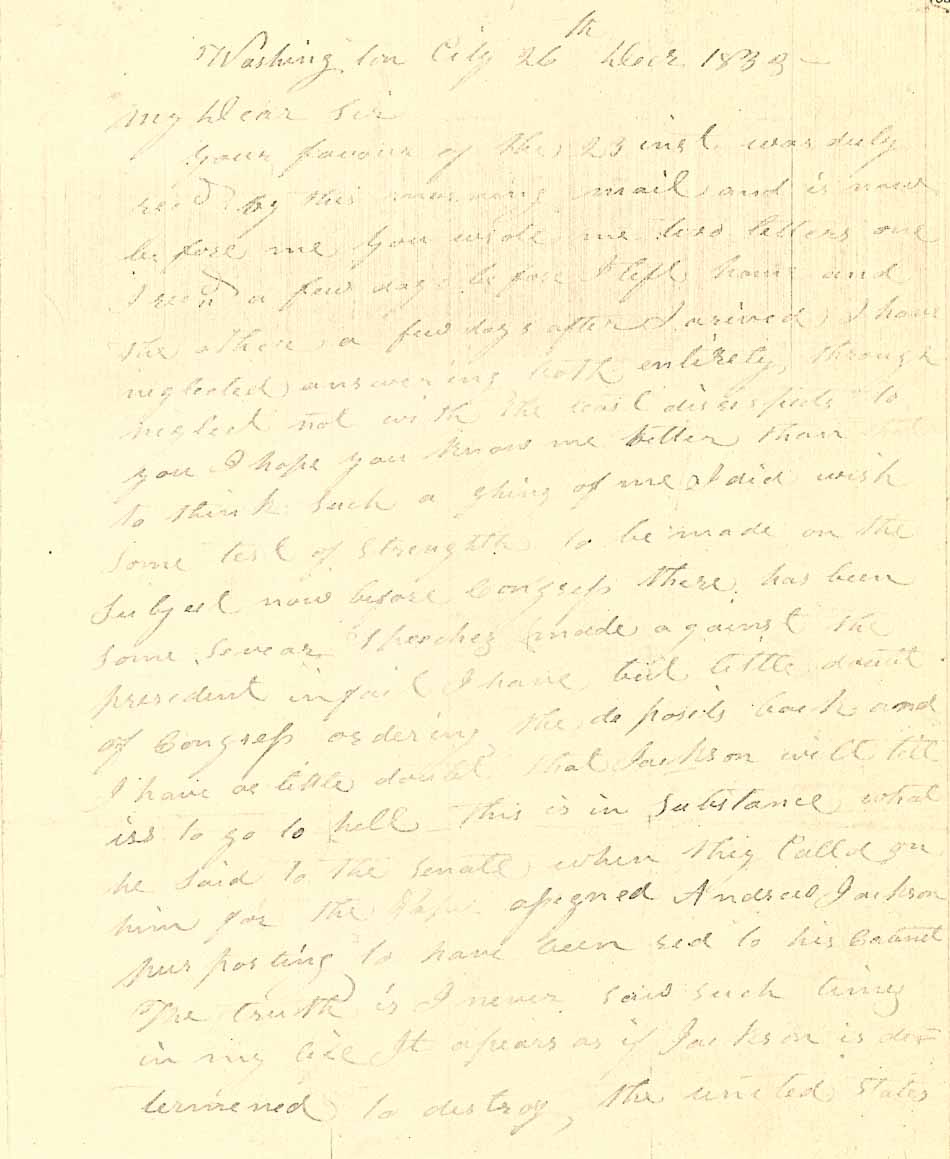 Washington City 26th Decr 1833 —
My Dear Sir
your favour of the 23 inst was duly
recd by this morning mail and is now
before me you wrote me two letters one
I recd a few days before I left home and
the other a few days after I arived I have
neglected answering both entirely through
neglect not with the least disrespects to
you I hope you know me better than
to think such a thing of me I did wish
some test of strenghth to be made on the
subject now before Congress there has been
some sevear speeches made against the
president in fact I have but little doubt
of Congress ordering the deposits back and
I have as little doubt that Jackson will tell
iss to go to hell this is in substance what
he said to the senate when they calld on
him for the asigned Andrew Jackson
purporting to have been red to his Cabinet
The truth is I never saw such times
in my life It apears as if Jackson is de=
termened to destroy the united States